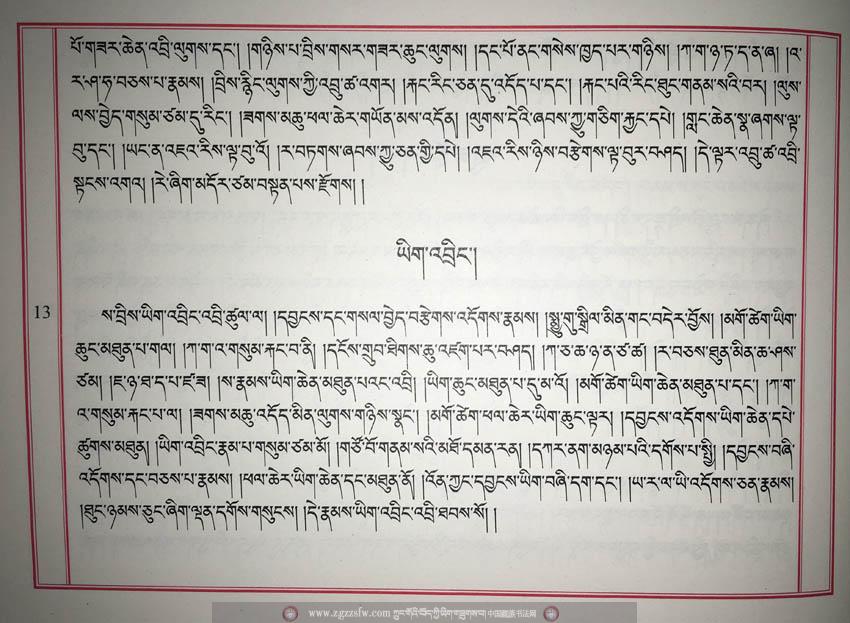 པོ་གཟར་ཆེན་འབྲི་ལུགས་དང་། །གཉིས་པ་བྲིས་གསར་གཟར་ཆུང་ལུགས། །དང་པོ་ནང་གསེས་ཁྱད་པར་གཉིས། །ཀ་ག་ཉ་ཏ་ད་ན་ཞ། །འ་
ར་ཤ་ཧ་བཅས་པ་རྣམས། །བྲིས་རྙིང་ལུགས་ཀྱི་འབྲུ་ཚ་འགར། །རྐང་རིང་ཅན་དུ་འདོད་པ་དང་། །རྐང་པའི་རིང་ཐུང་གནམ་སའི་བར། །ལུས་
ལས་བྱེད་གསུམ་ཙམ་དུ་རིང་། །ཟགས་མཆུ་ཕལ་ཆེར་གཡོན་མས་འདོན། །ལུགས་དེའི་ཞབས་ཀྱུ་གཅིག་རྐྱང་དཔེ། །གླང་ཆེན་སྣ་ཞགས་ལྟ་
བུ་དང་། །ཡང་ན་འཇའ་རིས་ལྟ་བུ་འོ། །ར་བཏགས་ཞབས་ཀྱུ་ཅན་གྱི་དཔེ། །འཇའ་རིས་ཉིས་བརྩེགས་ལྟ་བུར་བཤད། །དེ་ལྟར་འབྲུ་ཚ་འབྲི་
སྟངས་འགའ། །རེ་ཞིག་མདོར་ཙམ་བསྟན་པས་རྫོགས། །
ཡིག་འབྲིང་།
13
ས་བྲིས་ཡིག་འབྲིང་འབྲི་ཚུལ་ལ། །དབྱངས་དང་གསལ་བྱེད་བརྩེགས་འདོགས་རྣམས། །སྨྱུ་གུ་སྒྲིལ་མིན་གང་བདེར་བྱོས། །མགོ་ཚེག་ཡིག་
ཆུང་མཐུན་པ་གལ། །ཀ་ག་འ་གསུམ་རྐང་བ་ནི། །དངོས་གྲུབ་ཐིགས་ཆུ་འཛག་པར་བཤད། །ཀ་ཅ་ཆ་ཉ་ན་ཙ་ཚ། །ར་བཅས་ཐུན་མིན་ཆ་ཤས་
ཙམ། །ཇ་ཉ་ཐ་ད་པ་ཛ་ཟ། །ས་རྣམས་ཡིག་ཆེན་མཐུན་པའང་འབྲི། །ཡིག་ཆུང་མཐུན་པ་དུ་མ་འོ། །མགོ་ཚེག་ཡིག་ཆེན་མཐུན་པ་དང་། །ཀ་ག་
འ་གསུམ་རྐང་པ་ལ། །ཟགས་མཆུ་འདོད་མིན་ལུགས་གཉིས་སྣང་། །མགོ་ཚེག་ཕལ་ཆེར་ཡིག་ཆུང་ལྟར། །དབྱངས་འདོགས་ཡིག་ཆེན་དཔེ་
ཚུགས་མཐུན། །ཡིག་འབྲིང་རྣམ་པ་གསུམ་ཙམ་མོ། །གཙོ་བོ་གནམ་སའི་མཐོ་དམན་རན། །དཀར་ནག་མཉམ་པའི་དགོས་པ་སྤྱི། །དབྱངས་བཞི་
འདོགས་དང་བཅས་པ་རྣམས། །ཕལ་ཆེར་ཡིག་ཆེན་དང་མཐུན་ནོ། །འོན་ཀྱང་དབྱངས་ཡིག་བཞི་དག་དང་། །ཡ་ར་ལ་ཡི་འདོགས་ཅན་རྣམས།
།ཐུང་ཉམས་ཅུང་ཞིག་ལྡན་དགོས་གསུངས། །དེ་རྣམས་ཡིག་འབྲིང་འབྲི་ཐབས་སོ། །
www.zgzzsfw.com ཀྲུང་གོའི་བོད་ཀྱི་ཡིག་གཟུགས་དྲ་བ། 中国藏族书法网